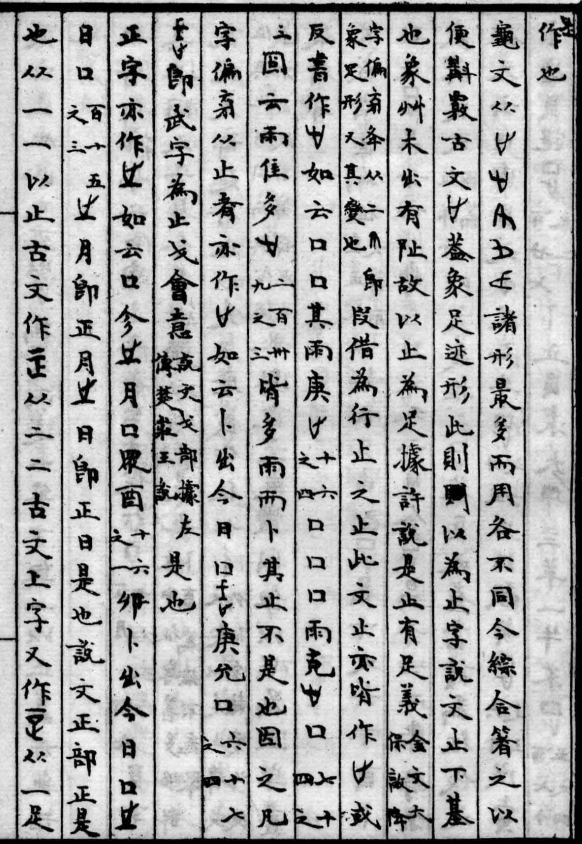 作也
龜文从諸形最多而用各不同今綜合著之以
便斠覈古文葢象足迹形此則以為止字說文止下基
也象艸木出有阯故以止為足據許說是止有足義金文大保敦降
字偏旁夅从二即象足形又其變也叚借為行止之止此文止亦皆作或
反書作如云口口其雨庚十六之四口口口雨克口七十四之
三云雨隹多一百卅九之三皆多雨而卜其止不是也因之凡
字偏旁从止者亦作如云卜出今日口庚允口六十七之四
即武字為止戈會意說文戈部據左傳楚莊王說是也
正字亦作如云口今月口眾酉十六之一卯卜出今日口
日口百十五之三月即正月日即正日是也說文正部正是
也从一一以止古文作从二二古文上字又作从一足